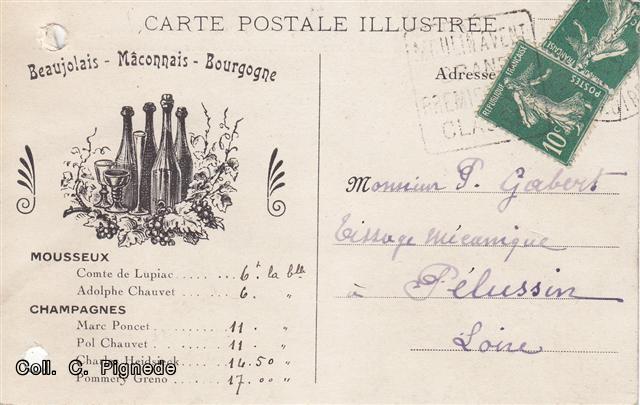 CARTE POSTALE ILLUSTRÉE
Beaujolais - Mâconnais - Bourgogne
MOUSSEUX
Comte de Lupiac ..... 6f la blle
Adolphe Chauvet ... 6. "
CHAMPAGNES
Marc Poncet ........ 11. "
Pol Chauvet ........ 11. "
Charles Heidsieck ... 14.50 "
Pommery Greno ..... 17.00 "
Coll. C. Pignède
Adresse
MOULIN A VENT
GRAND
PREMIER
REPUBLIQUE FRANÇAISE
POSTES
10c
Monsieur P. Gabert
Tissage Mécanique
à Pélussin
Loire